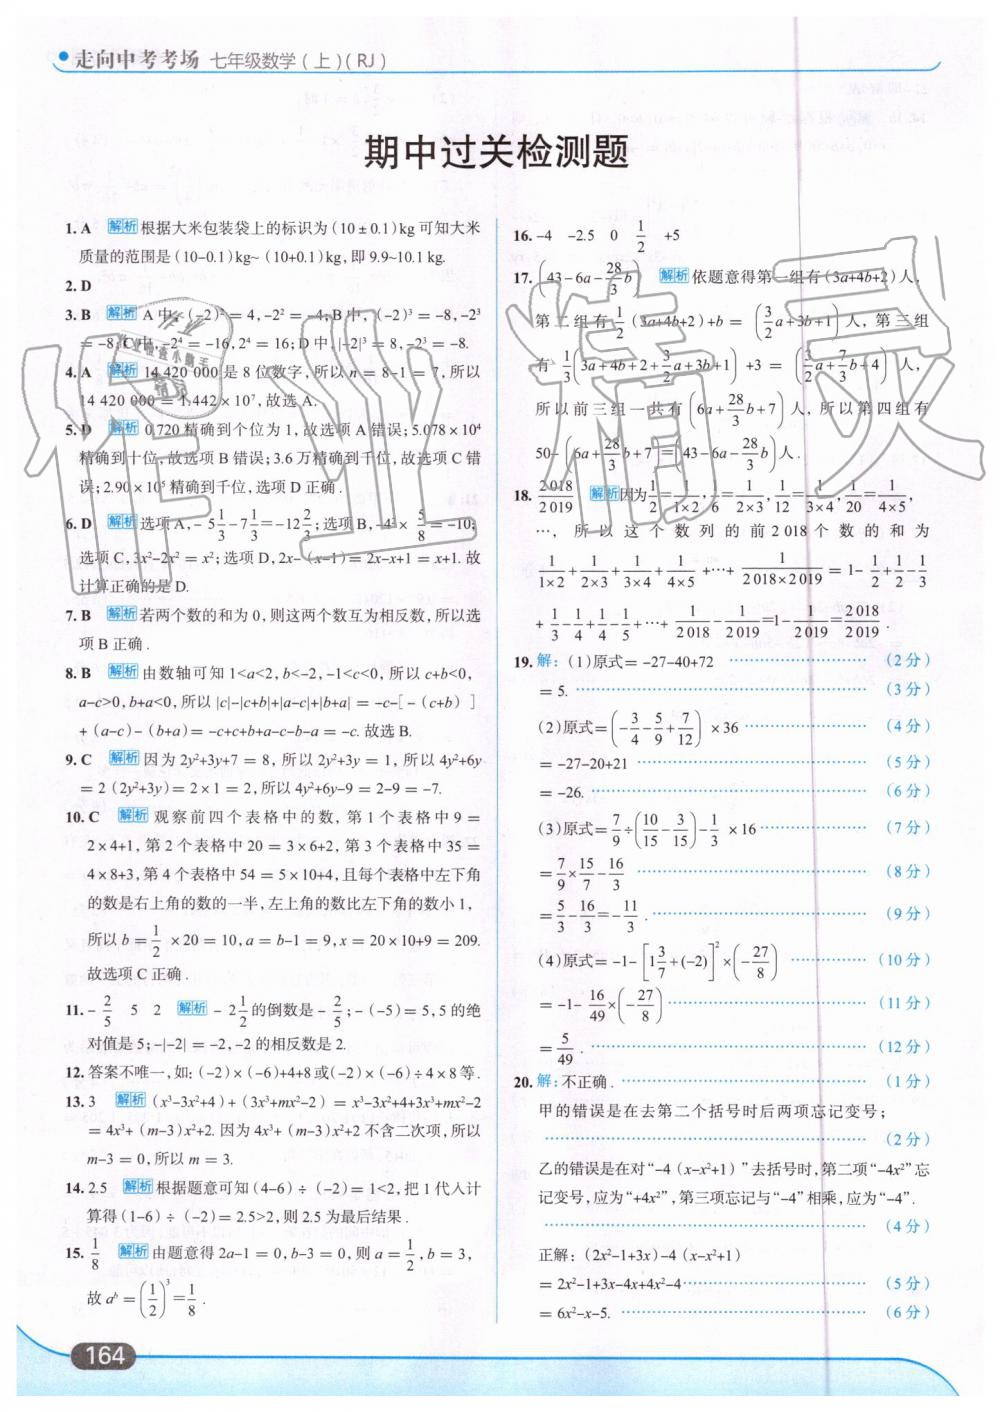 走向中考考场 七年级数学（上）（RJ）
期中过关检测题
1. A 解析 根据大米包装袋上的标识为（10±0.1）kg可知大米
质量的范围是（10-0.1）kg~（10+0.1）kg,即9.9~10.1 kg.
2. D
3. B 解析 A中,（-2）²=4,-2²=-4;B中,（-2）³=-8,-2³
=-8;C中,-2⁴=-16,2⁴=16;D中,|-2|³=8,-2³=-8.
4. A 解析 14 420 000是8位数字,所以n=8-1=7,所以
14 420 000=1.442×10⁷,故选A.
5. D 解析 0.720精确到个位为1,故选项A错误;5.078×10⁴
精确到十位,故选项B错误;3.6万精确到千位,故选项C错
误;2.90×10⁵精确到千位,选项D正确.
6. D 解析 选项A,-5 1/3-7 1/3=-12 2/3;选项B,-4²×5/8=-10;
选项C,3x²-2x²=x²;选项D,2x-（x-1）=2x-x+1=x+1.故
计算正确的是D.
7. B 解析 若两个数的和为0,则这两个数互为相反数,所以选
项B正确.
8. B 解析 由数轴可知1<a<2,b<-2,-1<c<0,所以c+b<0,
a-c>0,b+a<0,所以|c|-|c+b|+|a-c|+|b+a|=-c-[-（c+b）]
+（a-c）-（b+a）=-c+c+b+a-c-b-a=-c.故选B.
9. C 解析 因为2y²+3y+7=8,所以2y²+3y=1,所以4y²+6y
=2（2y²+3y）=2×1=2,所以4y²+6y-9=2-9=-7.
10. C 解析 观察前四个表格中的数,第1个表格中9=
2×4+1,第2个表格中20=3×6+2,第3个表格中35=
4×8+3,第4个表格中54=5×10+4,且每个表格中左下角
的数是右上角的数的一半,左上角的数比左下角的数小1,
所以b=1/2×20=10,a=b-1=9,x=20×10+9=209.
故选项C正确.
11. -2/5 5 2 解析 -2 1/2的倒数是-2/5;-（-5）=5,5的绝
对值是5;-|-2|=-2,-2的相反数是2.
12. 答案不唯一,如:（-2）×（-6）+4+8或（-2）×（-6）÷4×8等.
13. 3 解析 （x³-3x²+4）+（3x³+mx²-2）=x³-3x²+4+3x³+mx²-2
=4x³+（m-3）x²+2.因为4x³+（m-3）x²+2不含二次项,所以
m-3=0,所以m=3.
14. 2.5 解析 根据题意可知（4-6）÷（-2）=1<2,把1代入计
算得（1-6）÷（-2）=2.5>2,则2.5为最后结果.
15. 1/8 解析 由题意得2a-1=0,b-3=0,则a=1/2,b=3,
故aᵇ=(1/2)³=1/8.
16. -4 -2.5 0 1/2 +5
17. (43-6a-28/3b) 解析 依题意得第一组有（3a+4b+2）人,
第二组有1/2（3a+4b+2）+b=(3/2a+3b+1)人,第三组
有1/3(3a+4b+2+3/2a+3b+1)+3=(3/2a+7/3b+4)人,
所以前三组一共有(6a+28/3b+7)人,所以第四组有
50-(6a+28/3b+7)=(43-6a-28/3b)人.
18. 2018/2019 解析 因为1/2=1/(1×2),1/6=1/(2×3),1/12=1/(3×4),1/20=1/(4×5),
…,所以这个数列的前2018个数的和为
1/(1×2)+1/(2×3)+1/(3×4)+1/(4×5)+…+1/(2018×2019)=1-1/2+1/2-1/3
+1/3-1/4+1/4-1/5+…+1/2018-1/2019=1-1/2019=2018/2019.
19. 解:（1）原式=-27-40+72 （2分）
=5. （3分）
（2）原式=(-3/4-5/9+7/12)×36 （4分）
=-27-20+21 （5分）
=-26. （6分）
（3）原式=7/9÷(10/15-3/15)-1/3×16 （7分）
=7/9×15/7-16/3 （8分）
=5/3-16/3=-11/3. （9分）
（4）原式=-1-[1 3/7+(-2)]²×(-27/8) （10分）
=-1-16/49×(-27/8) （11分）
=5/49. （12分）
20. 解:不正确. （1分）
甲的错误是在去第二个括号时后两项忘记变号;
（2分）
乙的错误是在对“-4（x-x²+1）”去括号时,第二项“-4x²”忘
记变号,应为“+4x²”,第三项忘记与“-4”相乘,应为“-4”.
（4分）
正解:（2x²-1+3x）-4（x-x²+1）
=2x²-1+3x-4x+4x²-4 （5分）
=6x²-x-5. （6分）
164
作业精灵